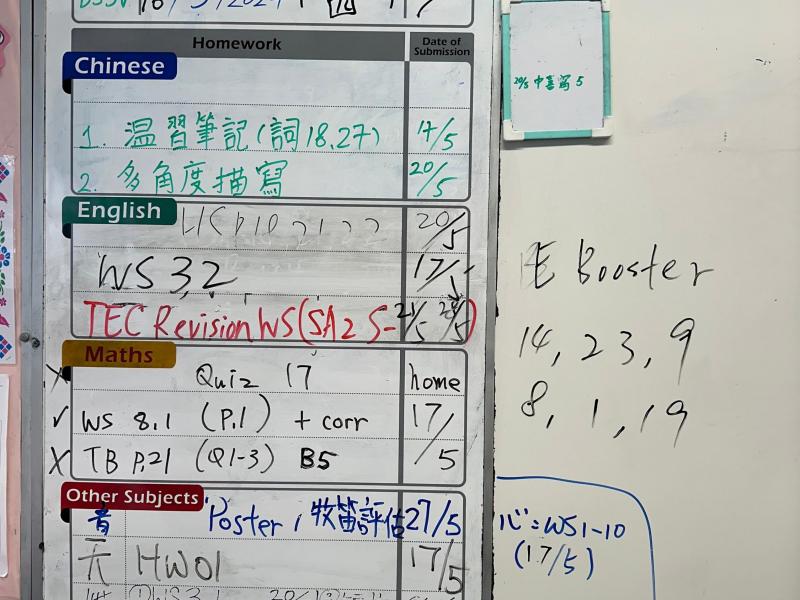 16/5/2024
Homework
Date of Submission
Chinese
1. 温習筆記(詞18,27) 17/5
2. 多角度描寫 20/5
English
20/5
WS 32 17/5
TEC Revision WS (SA2 S- 21/5
Maths
X Quiz 17 home
✓ WS 8.1 (P.1) + corr 17/5
X TB P.21 (Q1-3) B5
Other Subjects
音 Poster, 牧笛評估 27/5
HW01 17/5
20/5 中 寫 5
E Booster
14, 23, 9
8, 1, 19
心: WS1-10
(17/5)